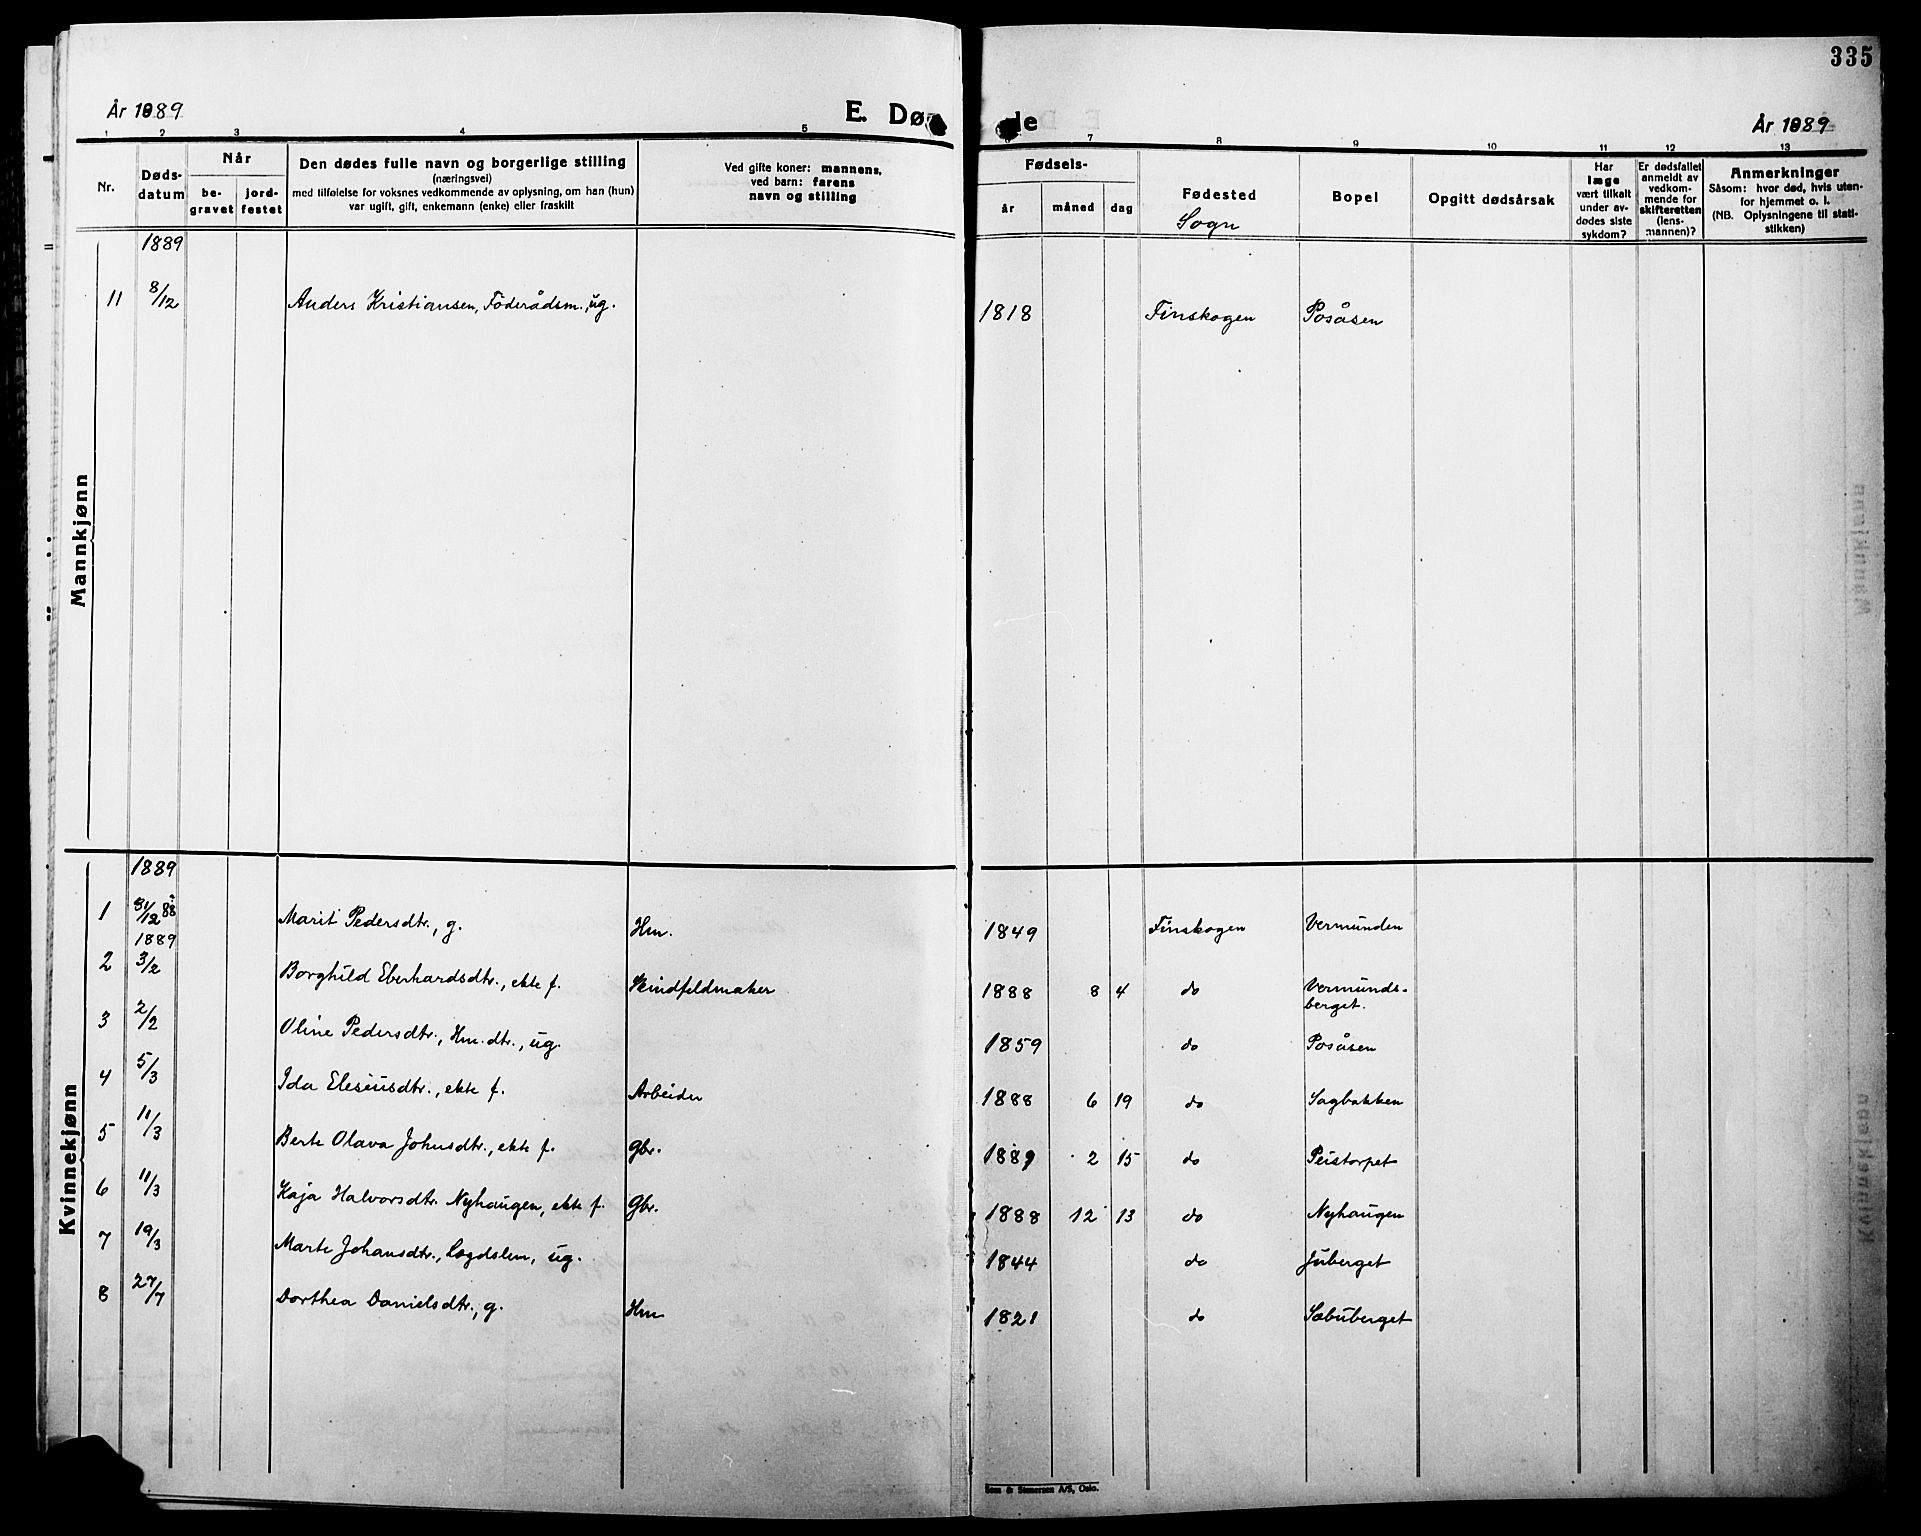 335
År 1889
E. Dø
de
År 1889
1 2 3 4 5
7 8 9 10 11 12 13
Nr.
Døds-
datum
Når
be-
gravet
jord-
festet
Den dødes fulle navn og borgerlige stilling
(næringsvei)
med tilføielse for voksnes vedkommende av oplysning, om han (hun)
var ugift, gift, enkemann (enke) eller fraskilt
Ved gifte koner: mannens,
ved barn: farens
navn og stilling
Fødsels-
år måned dag
Fødested
Sogn
Bopel
Opgitt dødsårsak
Har
læge
vært tilkalt
under av-
dødes siste
sykdom?
Er dødsfallet
anmeldt av
vedkom-
mende for
skifteretten
(lens-
mannen)?
Anmerkninger
Såsom: hvor død, hvis uten-
for hjemmet o. l.
(NB. Oplysningene til stati-
stikken)
Mannkjønn
1889
11 8/12 Anders Kristiansen, Føderådsm., ug. 1818 Finskogen Posåsen
Kvinnekjønn
1889
1 31/12 88 Marit Pedersdtr., g. Hm. 1849 Finskogen Vermunden
1889
2 3/2 Borghild Eberhardsdtr., ekte f. Skindfeldmaker 1888 8 4 do Vermunds-
berget.
3 2/2 Oline Pedersdtr., Hm. dtr., ug. 1859 do Posåsen
4 5/3 Ida Elesiusdtr., ekte f. Arbeider 1888 6 19 do Sagbakken
5 11/3 Berte Olava Johnsdtr., ekte f. Gbr. 1889 2 15 do Peistorpet
6 11/3 Kaja Halvorsdtr. Nyhaugen, ekte f. Gbr. 1888 12 13 do Nyhaugen
7 19/3 Marte Johansdtr., Lægdslem, ug. 1844 do Juberget
8 27/7 Dorthea Danielsdtr., g. Hm 1821 do Sæbuberget
Sem & Stenersen A/S, Oslo.